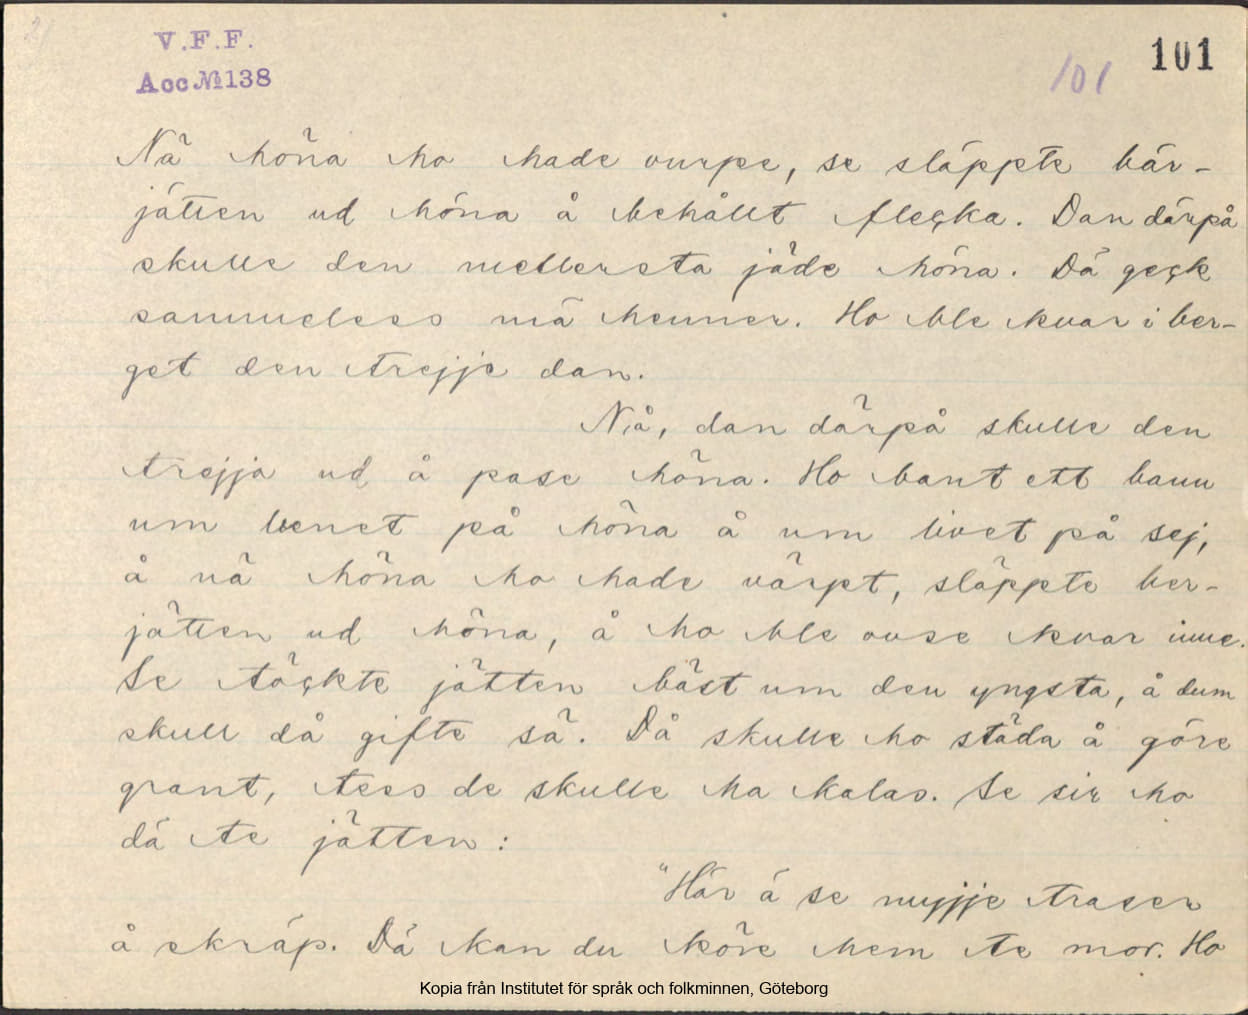 V.F.F.
Acc № 138
101
101
Nä höna ho hade vurpe, se släppte bär-
jätten ud höna å behållt fleçka. Dan därpå
skulle den mellersta jäde höna. Dä geçk
sammeless mä henner. Ho ble kvar i ber-
get den trejje dan.
Nå, dan därpå skulle den
trejja ud å pase höna. Ho bant ett bann
um benet på höna å um livet på sej,
å nä höna ho hade värpt, släppte ber-
jätten ud höna, å ho ble ouse kvar inne.
Se töçkte jätten bäst um den yngsta, å dum
skull då gifte sä. Då skulle ho städa å göre
grant, tess de skulle ha kalas. Se sir ho
dä te jätten:
"Här ä se myjje traser
å skräp. Dä kan du köre hem te mor. Ho
Kopia från Institutet för språk och folkminnen, Göteborg